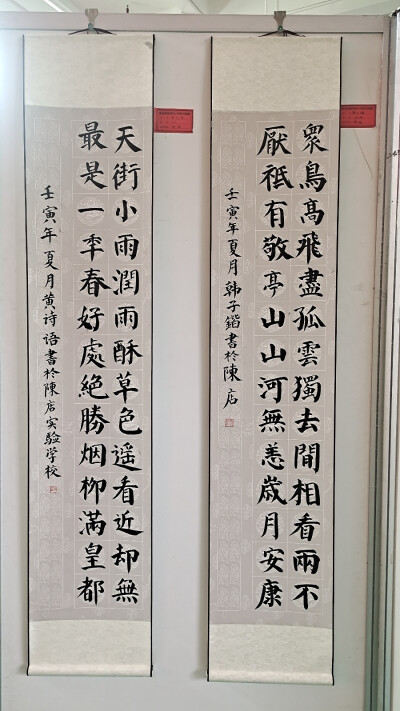 衆鳥髙飛盡孤雲獨去間相看兩不
厭祗有敬亭山山河無恙歲月安康
壬寅年夏月韩子锴書於陳店
天街小雨潤雨酥草色遥看近却無
最是一秊春好處絶勝烟柳滿皇都
壬寅年夏月黄诗语書於陳店实验学校